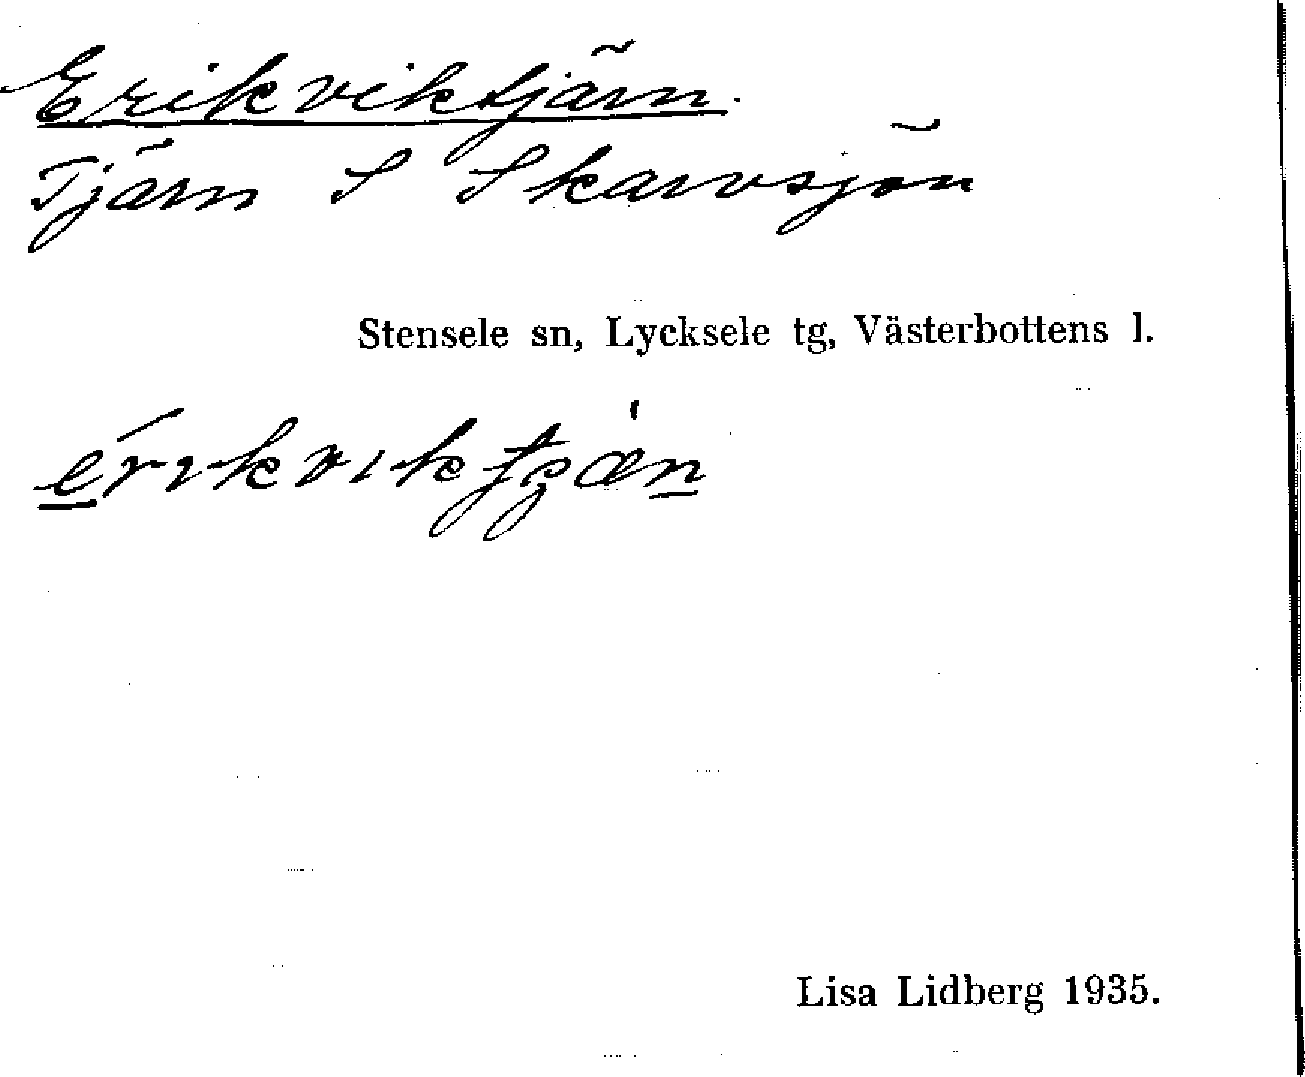 Erikviktjärn.
Tjärn S Skarvsjön
Stensele sn, Lycksele tg, Västerbottens l.
Lisa Lidberg 1935.